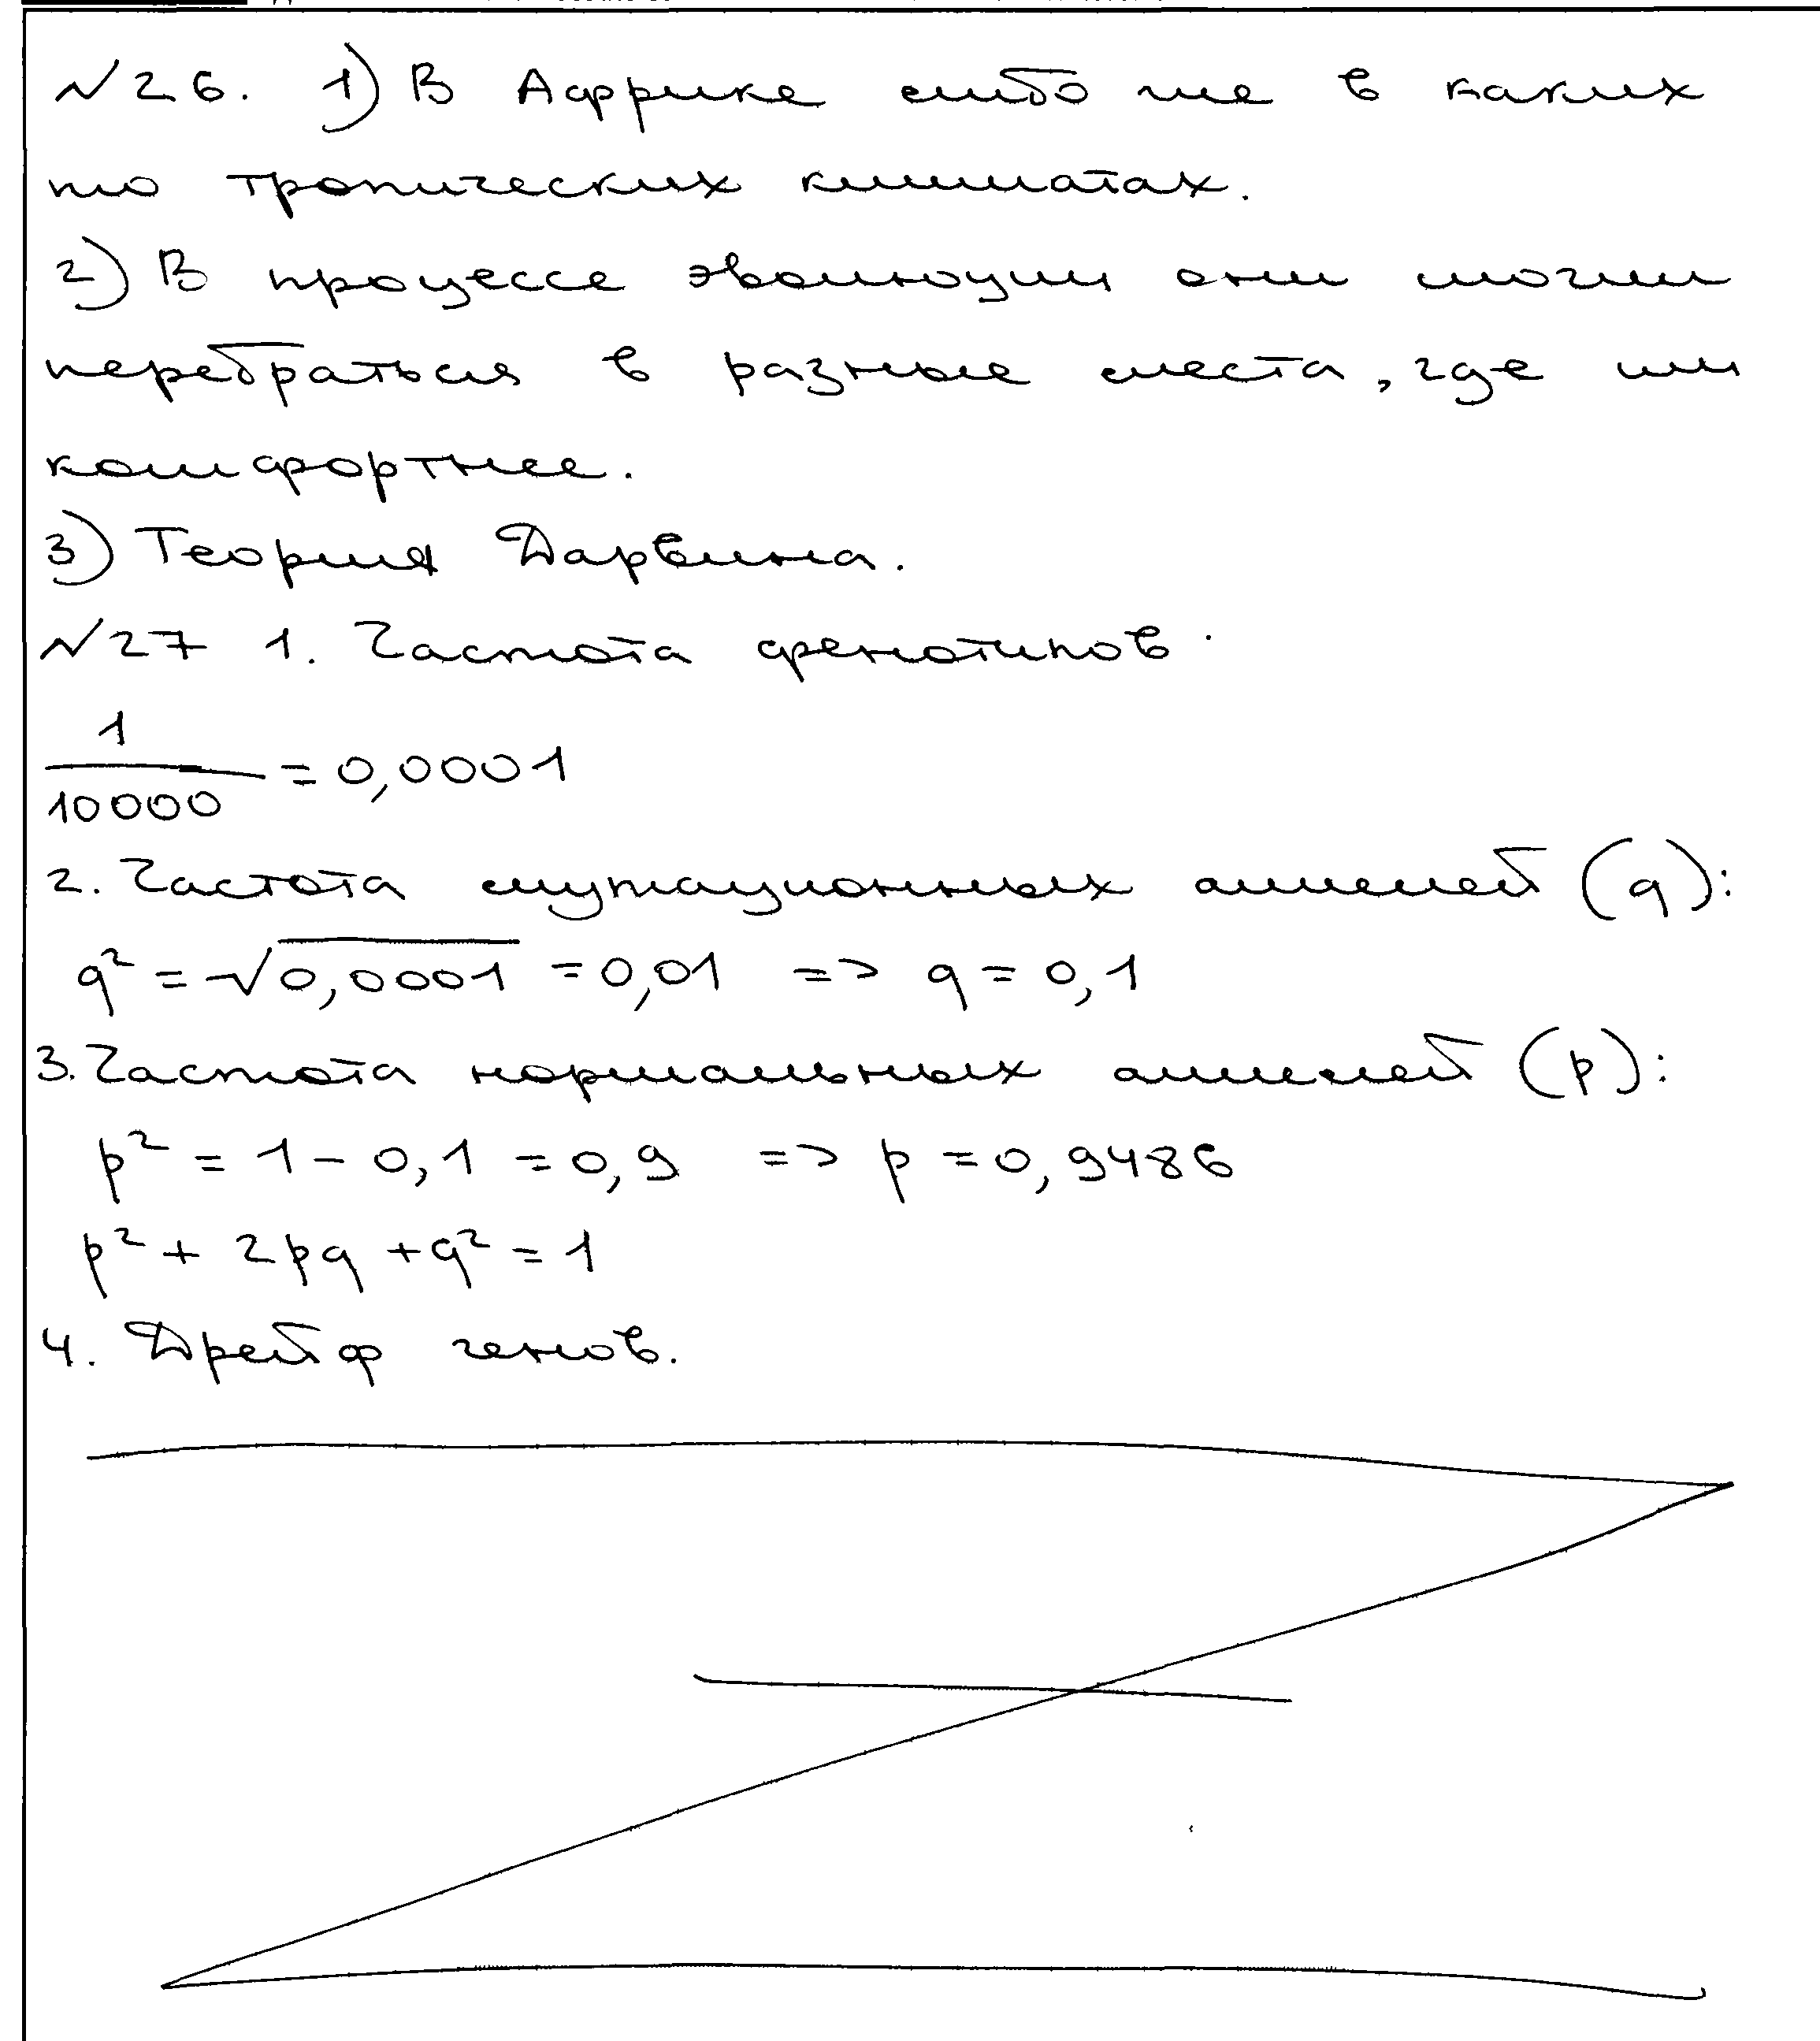 №26. 1) В Аффрике либо же в каких
то тропических климатах.
2) В процессе эволюции они могли
перебраться в разные места, где им
комфортнее.
3) Теория Дарвина.
№27 1. Частота фенотипов.
1/10000 = 0,0001
2. Частота мутационных аллелей (q):
q² = √0,0001 = 0,01 => q = 0,1
3. Частота нормальных аллелей (p):
p² = 1 - 0,1 = 0,9 => p = 0,9486
p² + 2pq + q² = 1
4. Дрейф генов.